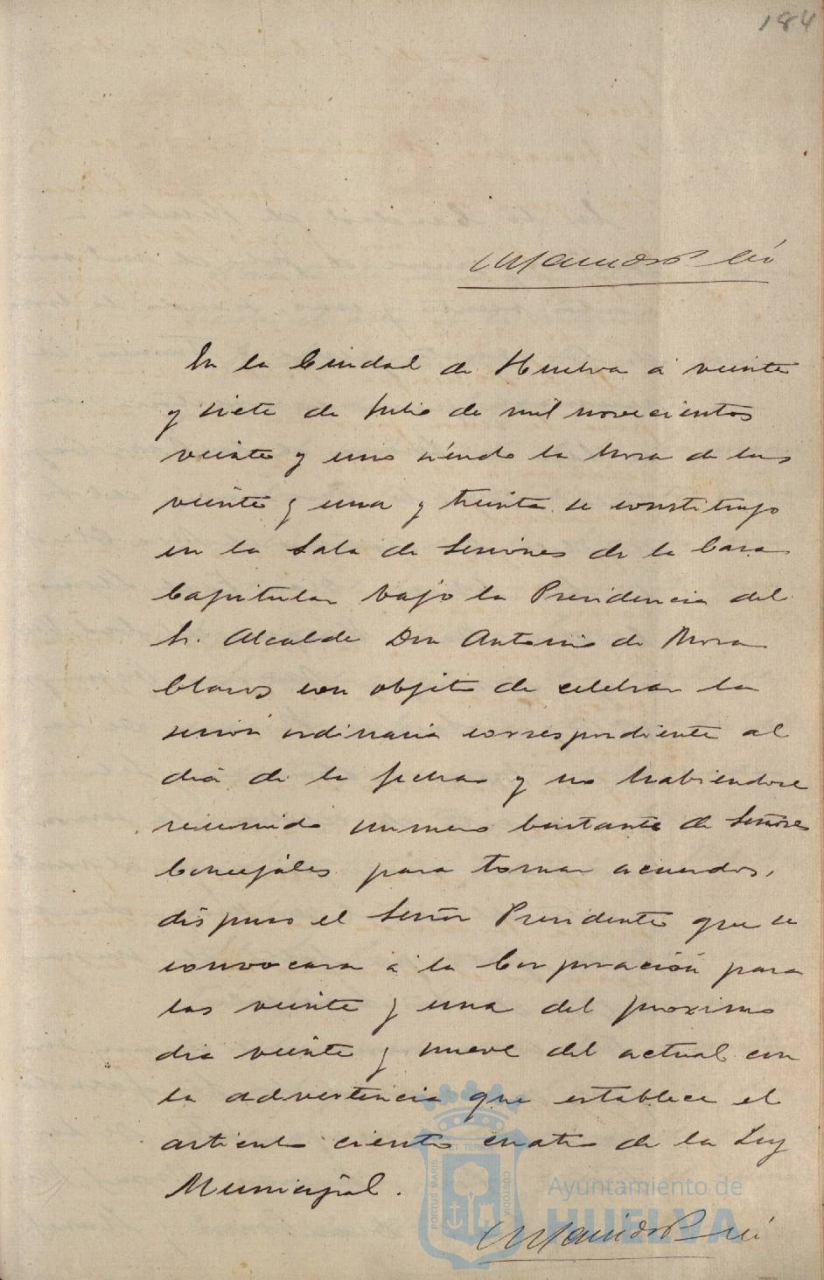 184
En la Ciudad de Huelva á veinte
y siete de Julio de mil novecientos
veinte y uno siendo la hora de las
veinte y una y treinta se constituyo
en la Sala de Sesiones de la Casa
Capitular bajo la Presidencia del
Sr. Alcalde Don Antonio de Mora
Claros con objeto de celebrar la
sesión ordinaria correspondiente al
dia de la fecha y no habiendose
reunido numero bastante de Señores
Concejáles para tomar acuerdos,
dispuso el Señor Presidente que se
convocara á la Corporación para
las veinte y una del proximo
dia veinte y nueve del actual con
la advertencia que establece el
articulo ciento cuatro de la Ley
Municipal.
PORTUS MARIS ET TERRAE CUSTODIA
Ayuntamiento de
HUELVA